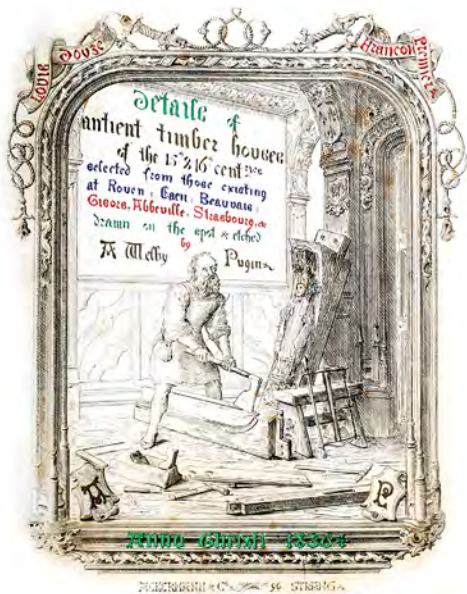 Louis Douze
Francois Premier
details of
antient timber houses
of the 15th & 16th cent ries
selected from those existing
at Rouen, Caen, Beauvais,
Gisors, Abbeville, Strasbourg, &c
drawn on the spot & etched
by
A Welby Pugin
A
P
Anno Christi
ACKERMANN & Co 96 STRAND